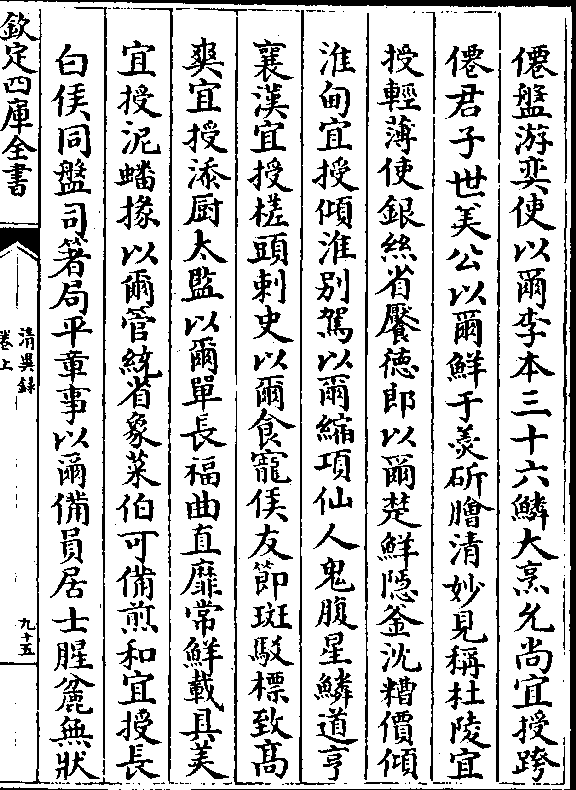 僊盤游奕使以爾李本三十六鱗大烹允尚宜授跨
僊君子世美公以爾鮮于羮斫膾清妙見稱杜陵宜
授輕薄使銀絲省饜徳郎以爾楚鮮隠釡沈糟價傾
淮甸宜授傾淮别駕以爾縮項仙人鬼腹星鱗道亨
襄漢宜授槎頭刺史以爾食寵侯友節斑駁標致髙
爽宜授添厨太監以爾單長福曲直靡常鮮載具美
宜授泥蟠掾以爾管統省象菜伯可備煎和宜授長
白侯同盤司箸局平章事以爾備員居士腥麄無狀
欽定四庫全書
清異録
卷上
九十五